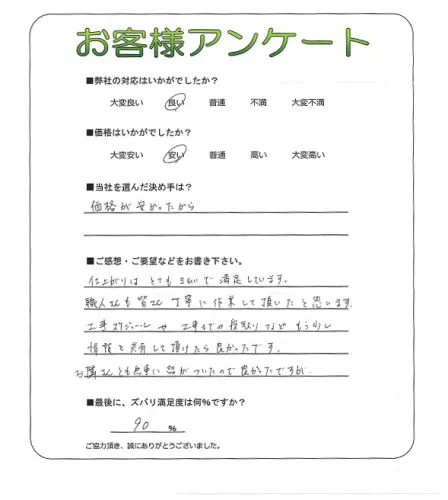 お客様アンケート
■弊社の対応はいかがでしたか?
大変良い 良い 普通 不満 大変不満
■価格はいかがでしたか?
大変安い 安い 普通 高い 大変高い
■当社を選んだ決め手は?
価格が安かったから
■ご感想・ご要望などをお書き下さい。
仕上がりは とても きれいで 満足しています。
職人さんも 皆さん 丁寧に 作業して頂いたと思います
工事スケジュール や 工事での段取り など もう少し
情報を共有して頂けたら良かったです。
お隣さんとも無事に話がついたので良かったですが.
■最後に、ズバリ満足度は何%ですか?
90 %
ご協力頂き、誠にありがとうございました。